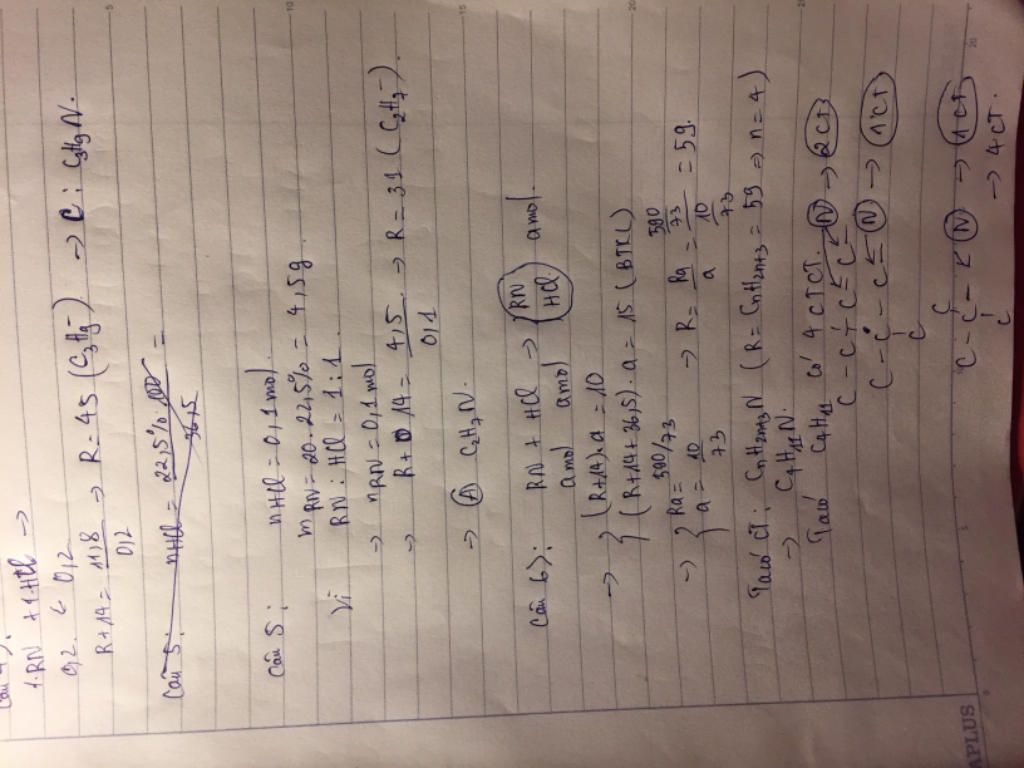 Câu 4).
1.RN + 1.HCl →
0,2 ← 0,2
R+14 = 11,8 / 0,2 → R = 45 (C3H9-) → C : C3H9N.
Câu 5: nHCl = 22,5%.100 / 36,5 =
Câu 5 : nHCl = 0,1mol
mRN = 20.22,5% = 4,5g
Vì RN : HCl = 1 : 1
→ nRN = 0,1mol
→ R + 14 = 4,5 / 0,1 → R = 31 (C2H7-).
→ (A) C2H7N.
Câu 6): RN + HCl → RN HCl amol.
amol amol
→ { (R+14).a = 10
(R+14+36,5).a = 15 (BTKL)
→ { Ra = 590/73 → R = Ra / a = 590/73 / 10/73 = 59.
a = 10/73
Ta có CT: CnH2n+3N (R = CnH2n+3 = 59 ⇒ n = 4)
→ C4H11N.
Ta có C4H11 có 4 CTCT.
C - C - C - C - (N) → (2CT)
C - C - C - (N) → (1CT)
C
C
C - C - (N) → (1CT)
C
→ 4CT.
APLUS